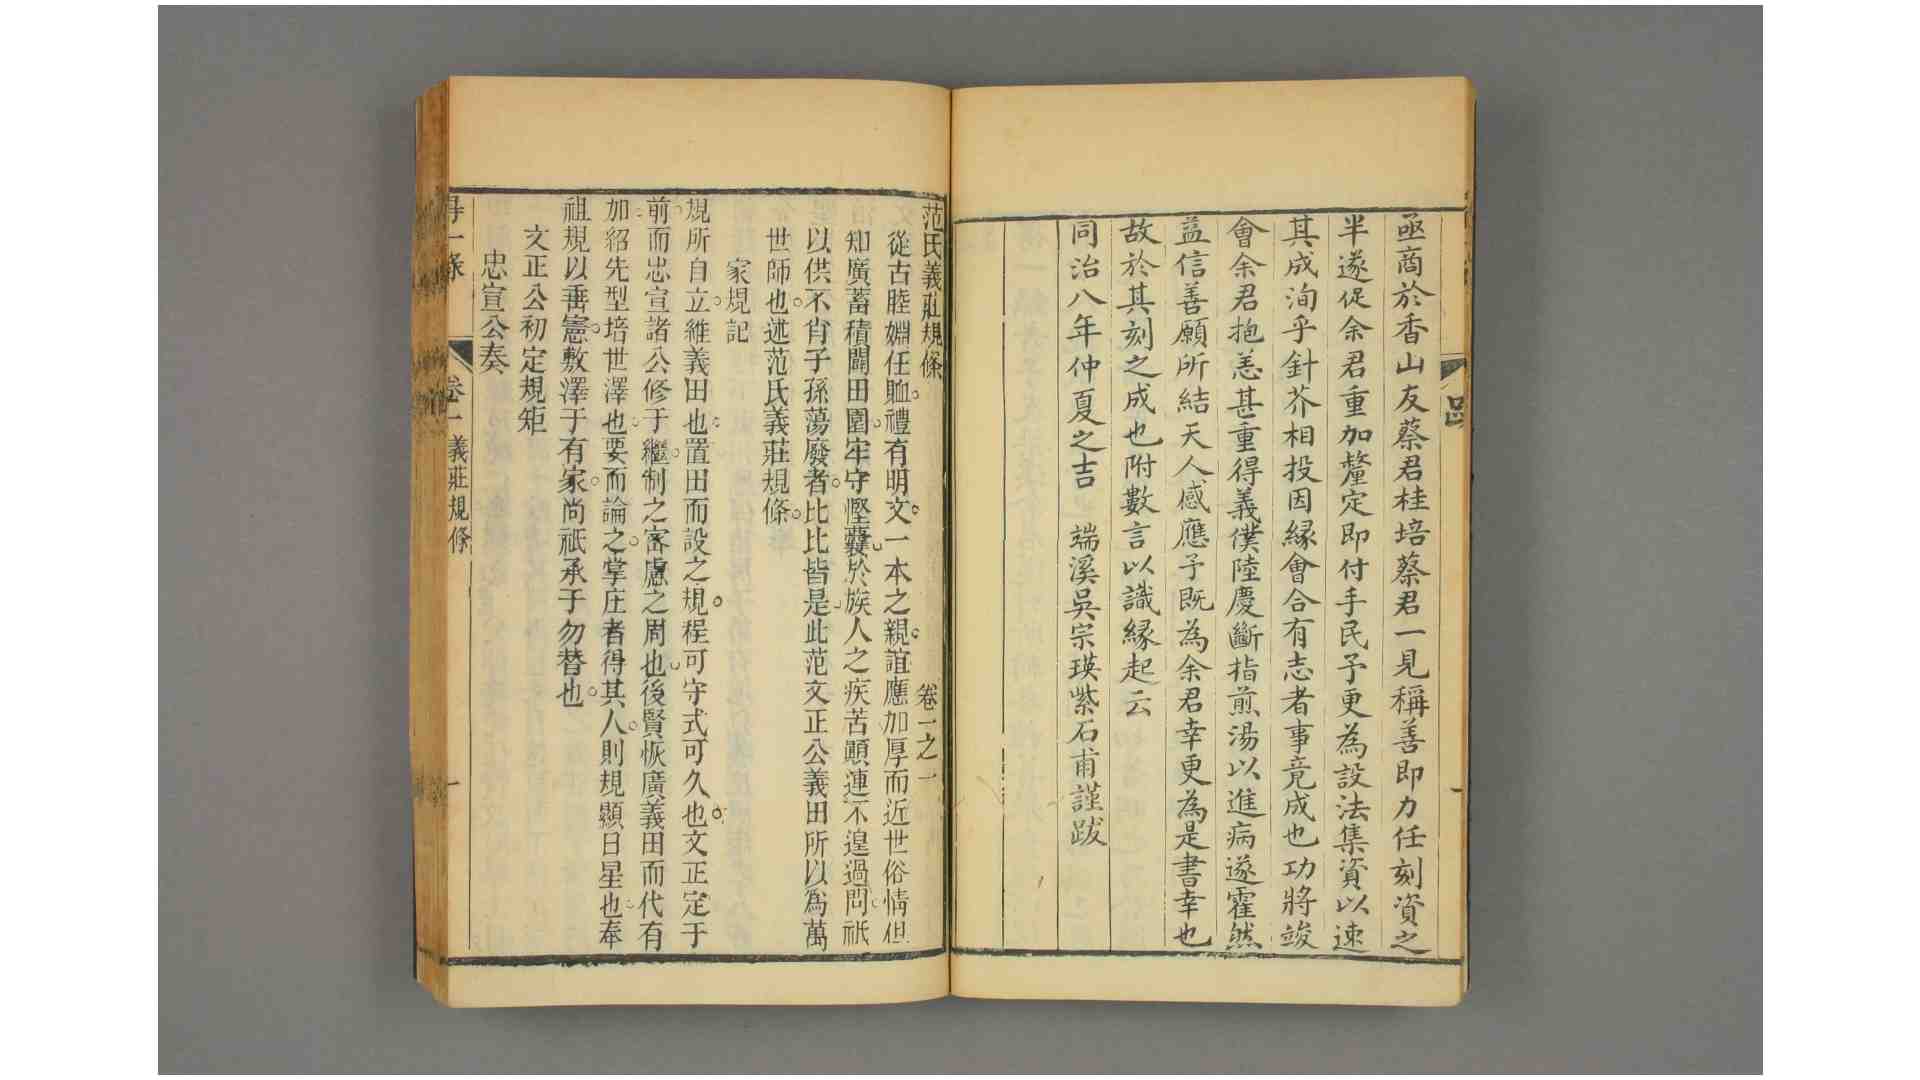 亟商於香山友蔡君桂培蔡君一見稱善即力任刻資之
半遂促余君重加釐定即付手民予更為設法集資以速
其成洵乎針芥相投因緣會合有志者事竟成也功將竣
會余君抱恙甚重得義僕陸慶斷指煎湯以進病遂霍然
益信善願所結天人感應予既為余君幸更為是書幸也
故於其刻之成也附數言以識緣起云
同治八年仲夏之吉 端溪吳宗瑛紫石甫謹跋
范氏義莊規條 卷一之一
從古睦婣任卹禮有明文一本之親誼應加厚而近世俗情但
知廣蓄積闢田園牢守慳囊於族人之疾苦顚連不遑過問祇
以供不肖子孫蕩廢者比比皆是此范文正公義田所以爲萬
世師也述范氏義莊規條
家規記
規所自立維義田也置田而設之規程可守式可久也文正定于
前而忠宣諸公修于繼制之密慮之周也後賢恢廣義田而代有
加紹先型培世澤也要而論之掌庄者得其人則規顯日星也奉
祖規以垂憲敷澤于有家尚祇承于勿替也
文正公初定規矩
忠宣公奏
卷一 義莊規條 一